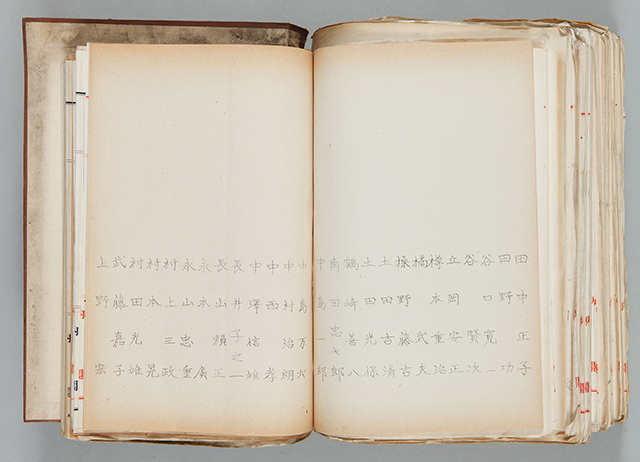 田中正子
田野功
谷口寛一
谷賢次
立岡安正
樽本重治
橘武夫
野藤吉
土田吉清
土田光保
鶴崎善八
角田忠七郎
中島一郎
中島万六
中村治朗
中西孝
中澤信雄
長井子之一
長山頼正
永本廣
永山忠重
村上三政
村本晃
村田光雄
武藤嘉子
上野宏